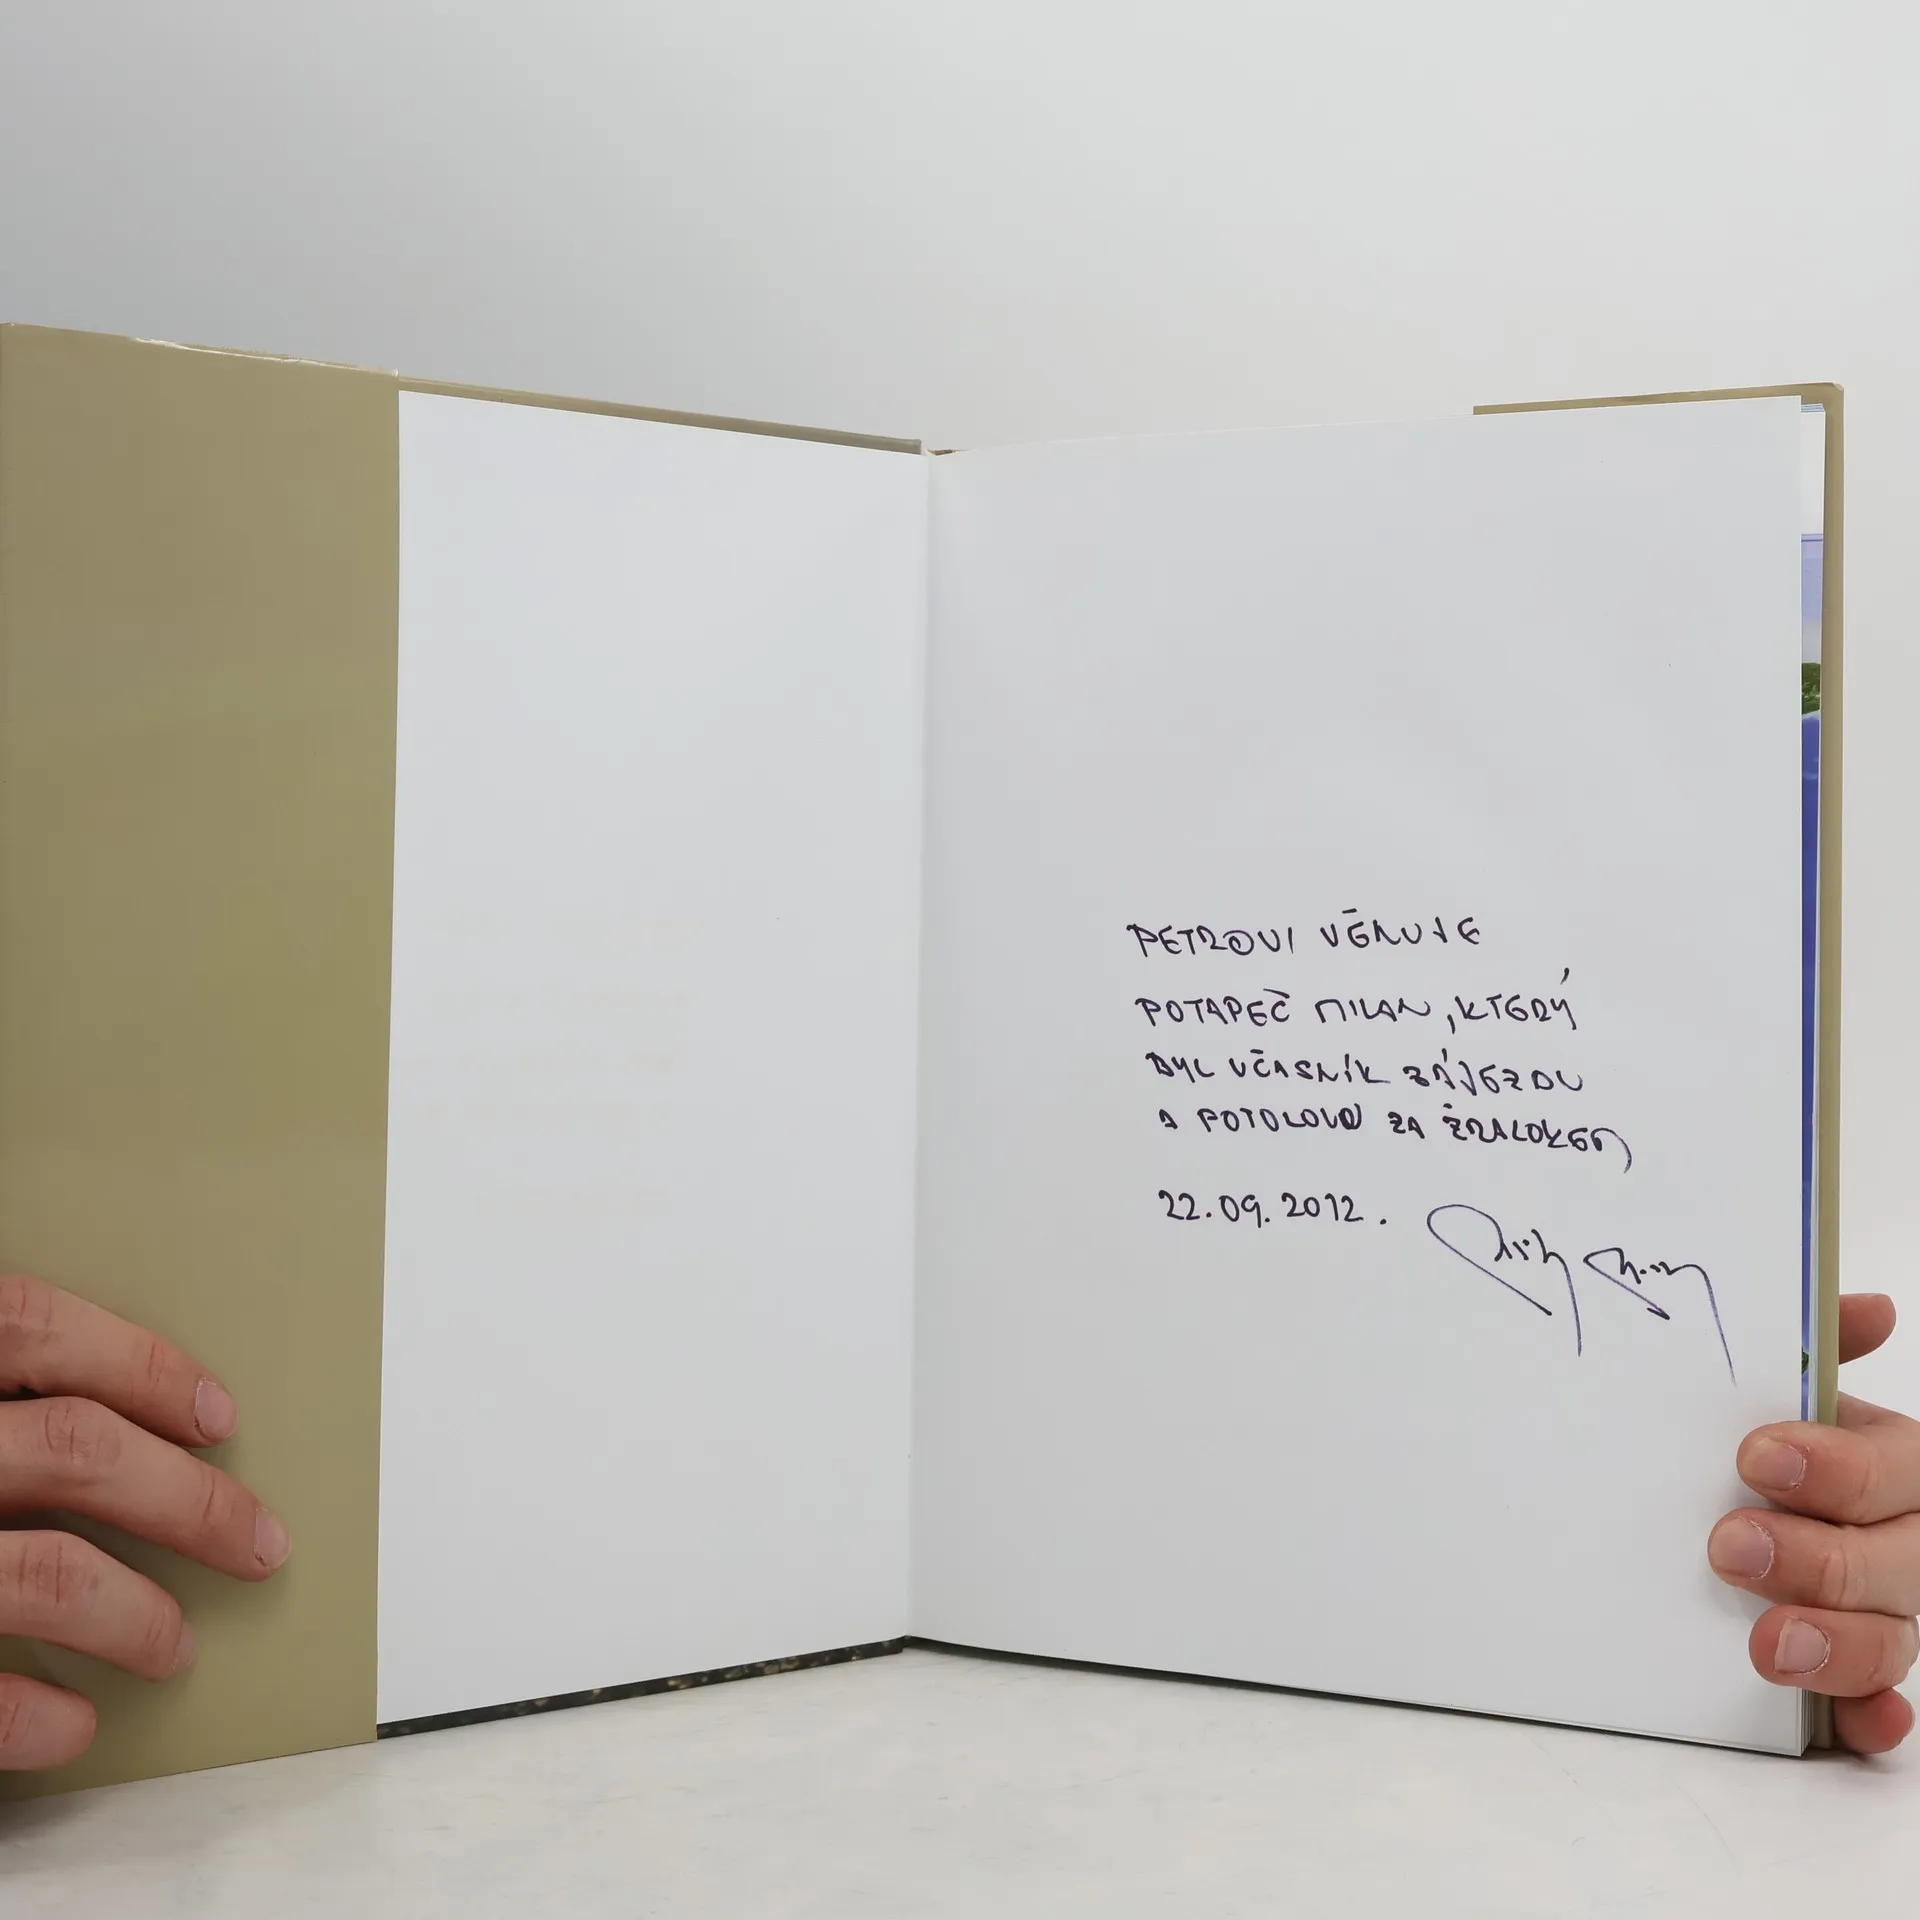 PETROVI VĚNUJE
POTAPEČ MILAN, KTERÝ
BYL ÚČASNÍK ZÁJEZDU
A POTOLOVO ZA ŽRALOKEM
22.09.2012.